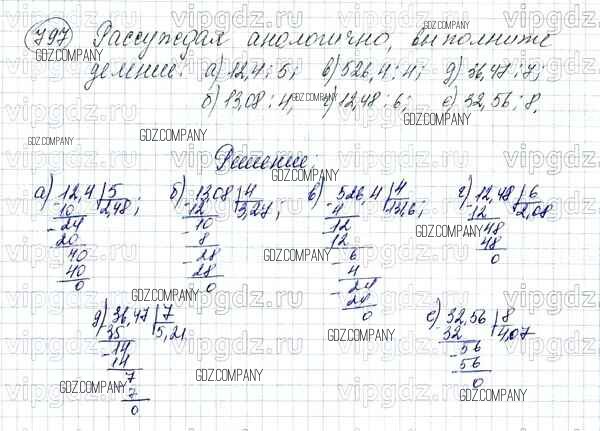 797 Рассуждая аналогично, выполните
деление: а) 12,4 : 5; в) 526,4 : 4; д) 36,47 : 7;
б) 13,08 : 4; г) 12,48 : 6; е) 32,56 : 8.
Решение:
а) 12,4 | 5
10 2,48;
- 24
20
40
40
0
б) 13,08 | 4
- 12 3,27;
10
8
- 28
28
0
в) 526,4 | 4
4 131,6;
- 12
12
- 6
4
- 24
24
0
г) 12,48 | 6
- 12 2,08
48
48
0
д) 36,47 | 7
35 5,21
- 14
14
7
7
0
е) 32,56 | 8
32 4,07
- 56
56
0
GDZ.COMPANY
vipgdz.ru